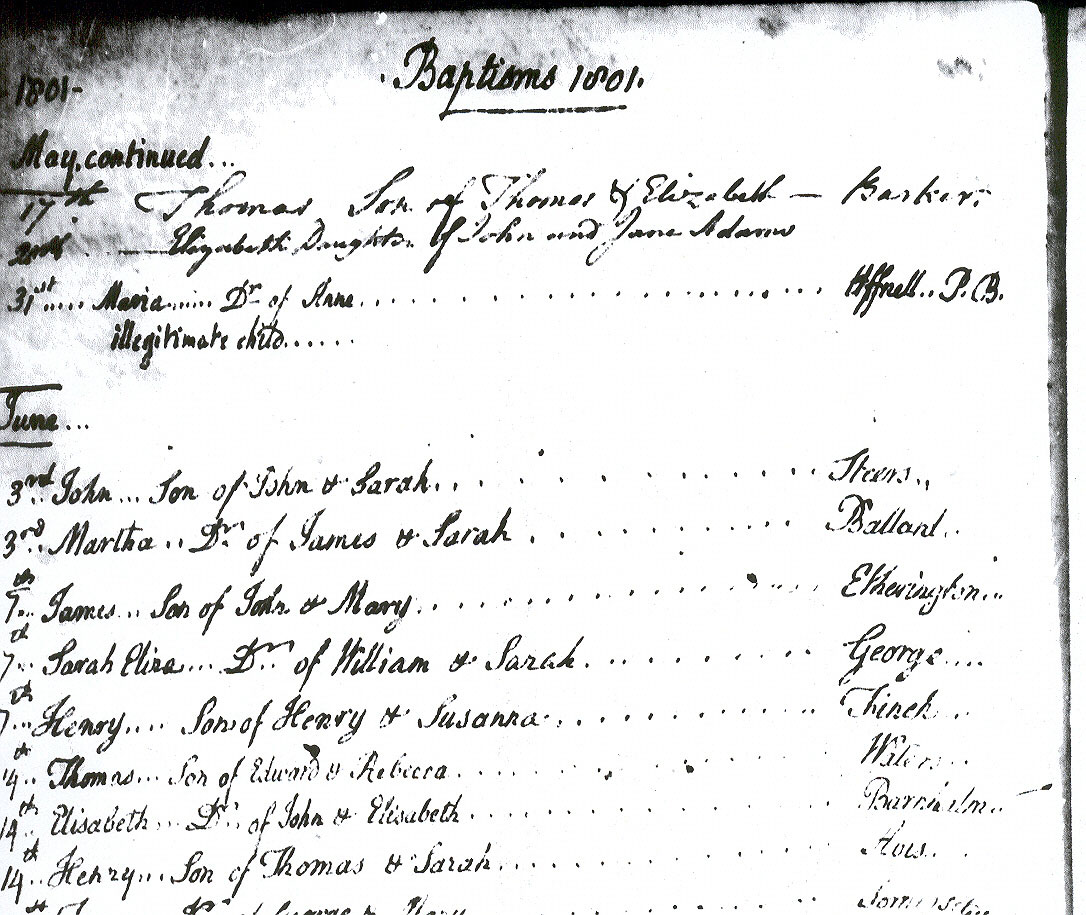 Baptisms 1801.
1801-
May. continued...
17th Thomas Son of Thomas & Elizabeth — Barker
Elizabeth Daughter of John and Jane Adams
31st.... Maria..... Dr of Anne.................... P. B.
illegitimate child......
June...
3rd.. John... Son of John & Sarah........... Steers..
3rd.. Martha.. Dr. of James & Sarah.......... Ballard..
7th.. James... Son of John & Mary........... Etherington...
7th.. Sarah Eliza.... Dr... of William & Sarah........ George....
7th... Henry.... Son of Henry & Susanna......... Finch...
14th.. Thomas.... Son of Edward & Rebecca.......... Waters...
14th.. Elisabeth... Dr... of John & Elisabeth..........
14th.. Henry.... Son of Thomas & Sarah...........
Dr. of George & Mary